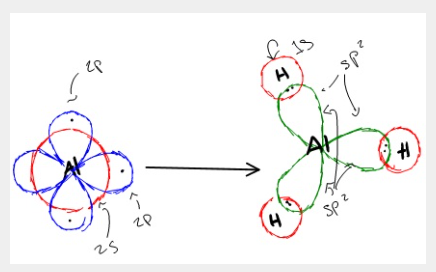 2P
Al
2P
2S
H
1S
sp²
Al
H
sp²
H